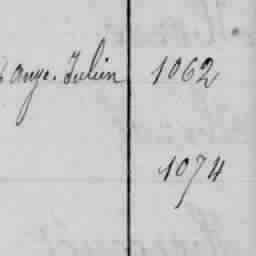 Ange. Julien 1062
1074